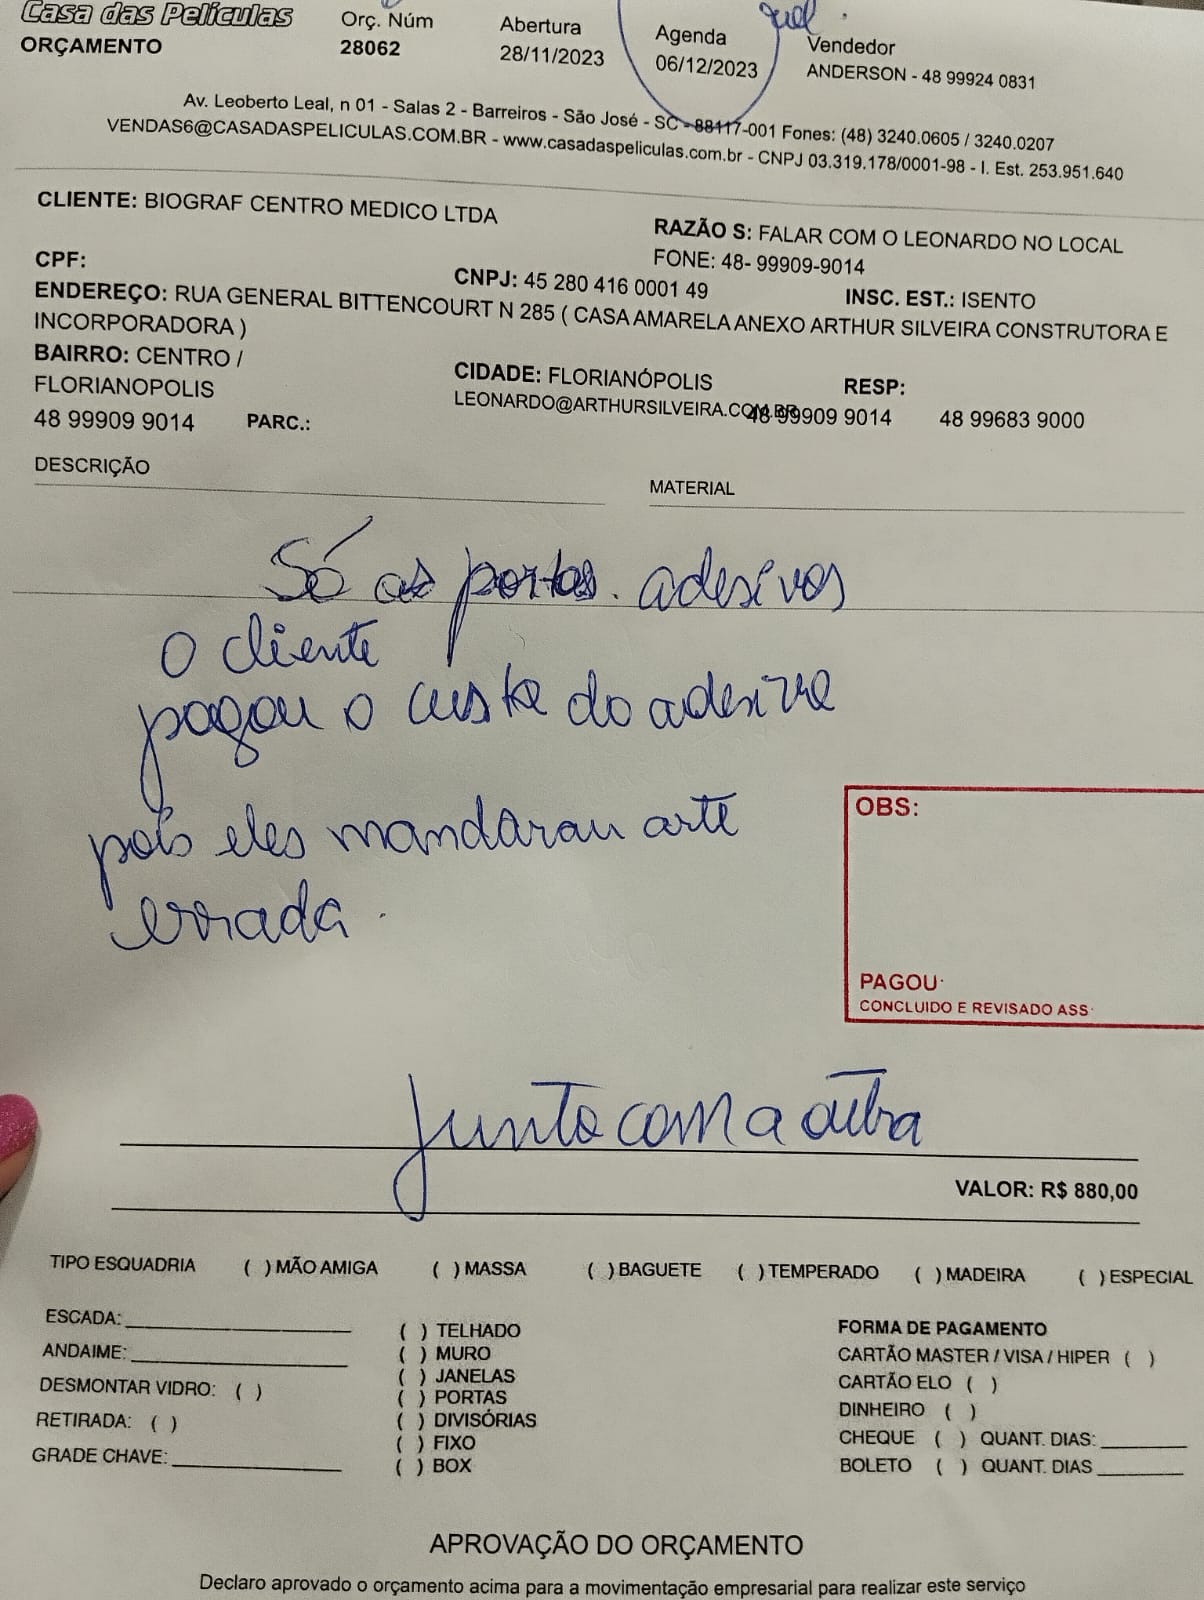 Casa das Películas
ORÇAMENTO
Orç. Núm
28062
Abertura
28/11/2023
Agenda
06/12/2023
Vendedor
ANDERSON - 48 99924 0831
Av. Leoberto Leal, n 01 - Salas 2 - Barreiros - São José - SC - 88117-001 Fones: (48) 3240.0605 / 3240.0207
VENDAS6@CASADASPELICULAS.COM.BR - www.casadaspeliculas.com.br - CNPJ 03.319.178/0001-98 - I. Est. 253.951.640
CLIENTE: BIOGRAF CENTRO MEDICO LTDA
RAZÃO S: FALAR COM O LEONARDO NO LOCAL
FONE: 48- 99909-9014
CPF:
CNPJ: 45 280 416 0001 49
INSC. EST.: ISENTO
ENDEREÇO: RUA GENERAL BITTENCOURT N 285 ( CASA AMARELA ANEXO ARTHUR SILVEIRA CONSTRUTORA E
INCORPORADORA )
BAIRRO: CENTRO /
FLORIANOPOLIS
CIDADE: FLORIANÓPOLIS
RESP:
LEONARDO@ARTHURSILVEIRA.COM.BR
48 99909 9014
48 99683 9000
48 99909 9014
PARC.:
DESCRIÇÃO
MATERIAL
Só as portas. adesivos
O cliente
pagou o custo do adesivo
pois eles mandarau arte
errada.
OBS:
PAGOU:
CONCLUIDO E REVISADO ASS:
Junto com a outra
VALOR: R$ 880,00
TIPO ESQUADRIA ( ) MÃO AMIGA ( ) MASSA ( ) BAGUETE ( ) TEMPERADO ( ) MADEIRA ( ) ESPECIAL
ESCADA:
ANDAIME:
DESMONTAR VIDRO: ( )
RETIRADA: ( )
GRADE CHAVE:
( ) TELHADO
( ) MURO
( ) JANELAS
( ) PORTAS
( ) DIVISÓRIAS
( ) FIXO
( ) BOX
FORMA DE PAGAMENTO
CARTÃO MASTER / VISA / HIPER ( )
CARTÃO ELO ( )
DINHEIRO ( )
CHEQUE ( ) QUANT. DIAS:
BOLETO ( ) QUANT. DIAS
APROVAÇÃO DO ORÇAMENTO
Declaro aprovado o orçamento acima para a movimentação empresarial para realizar este serviço